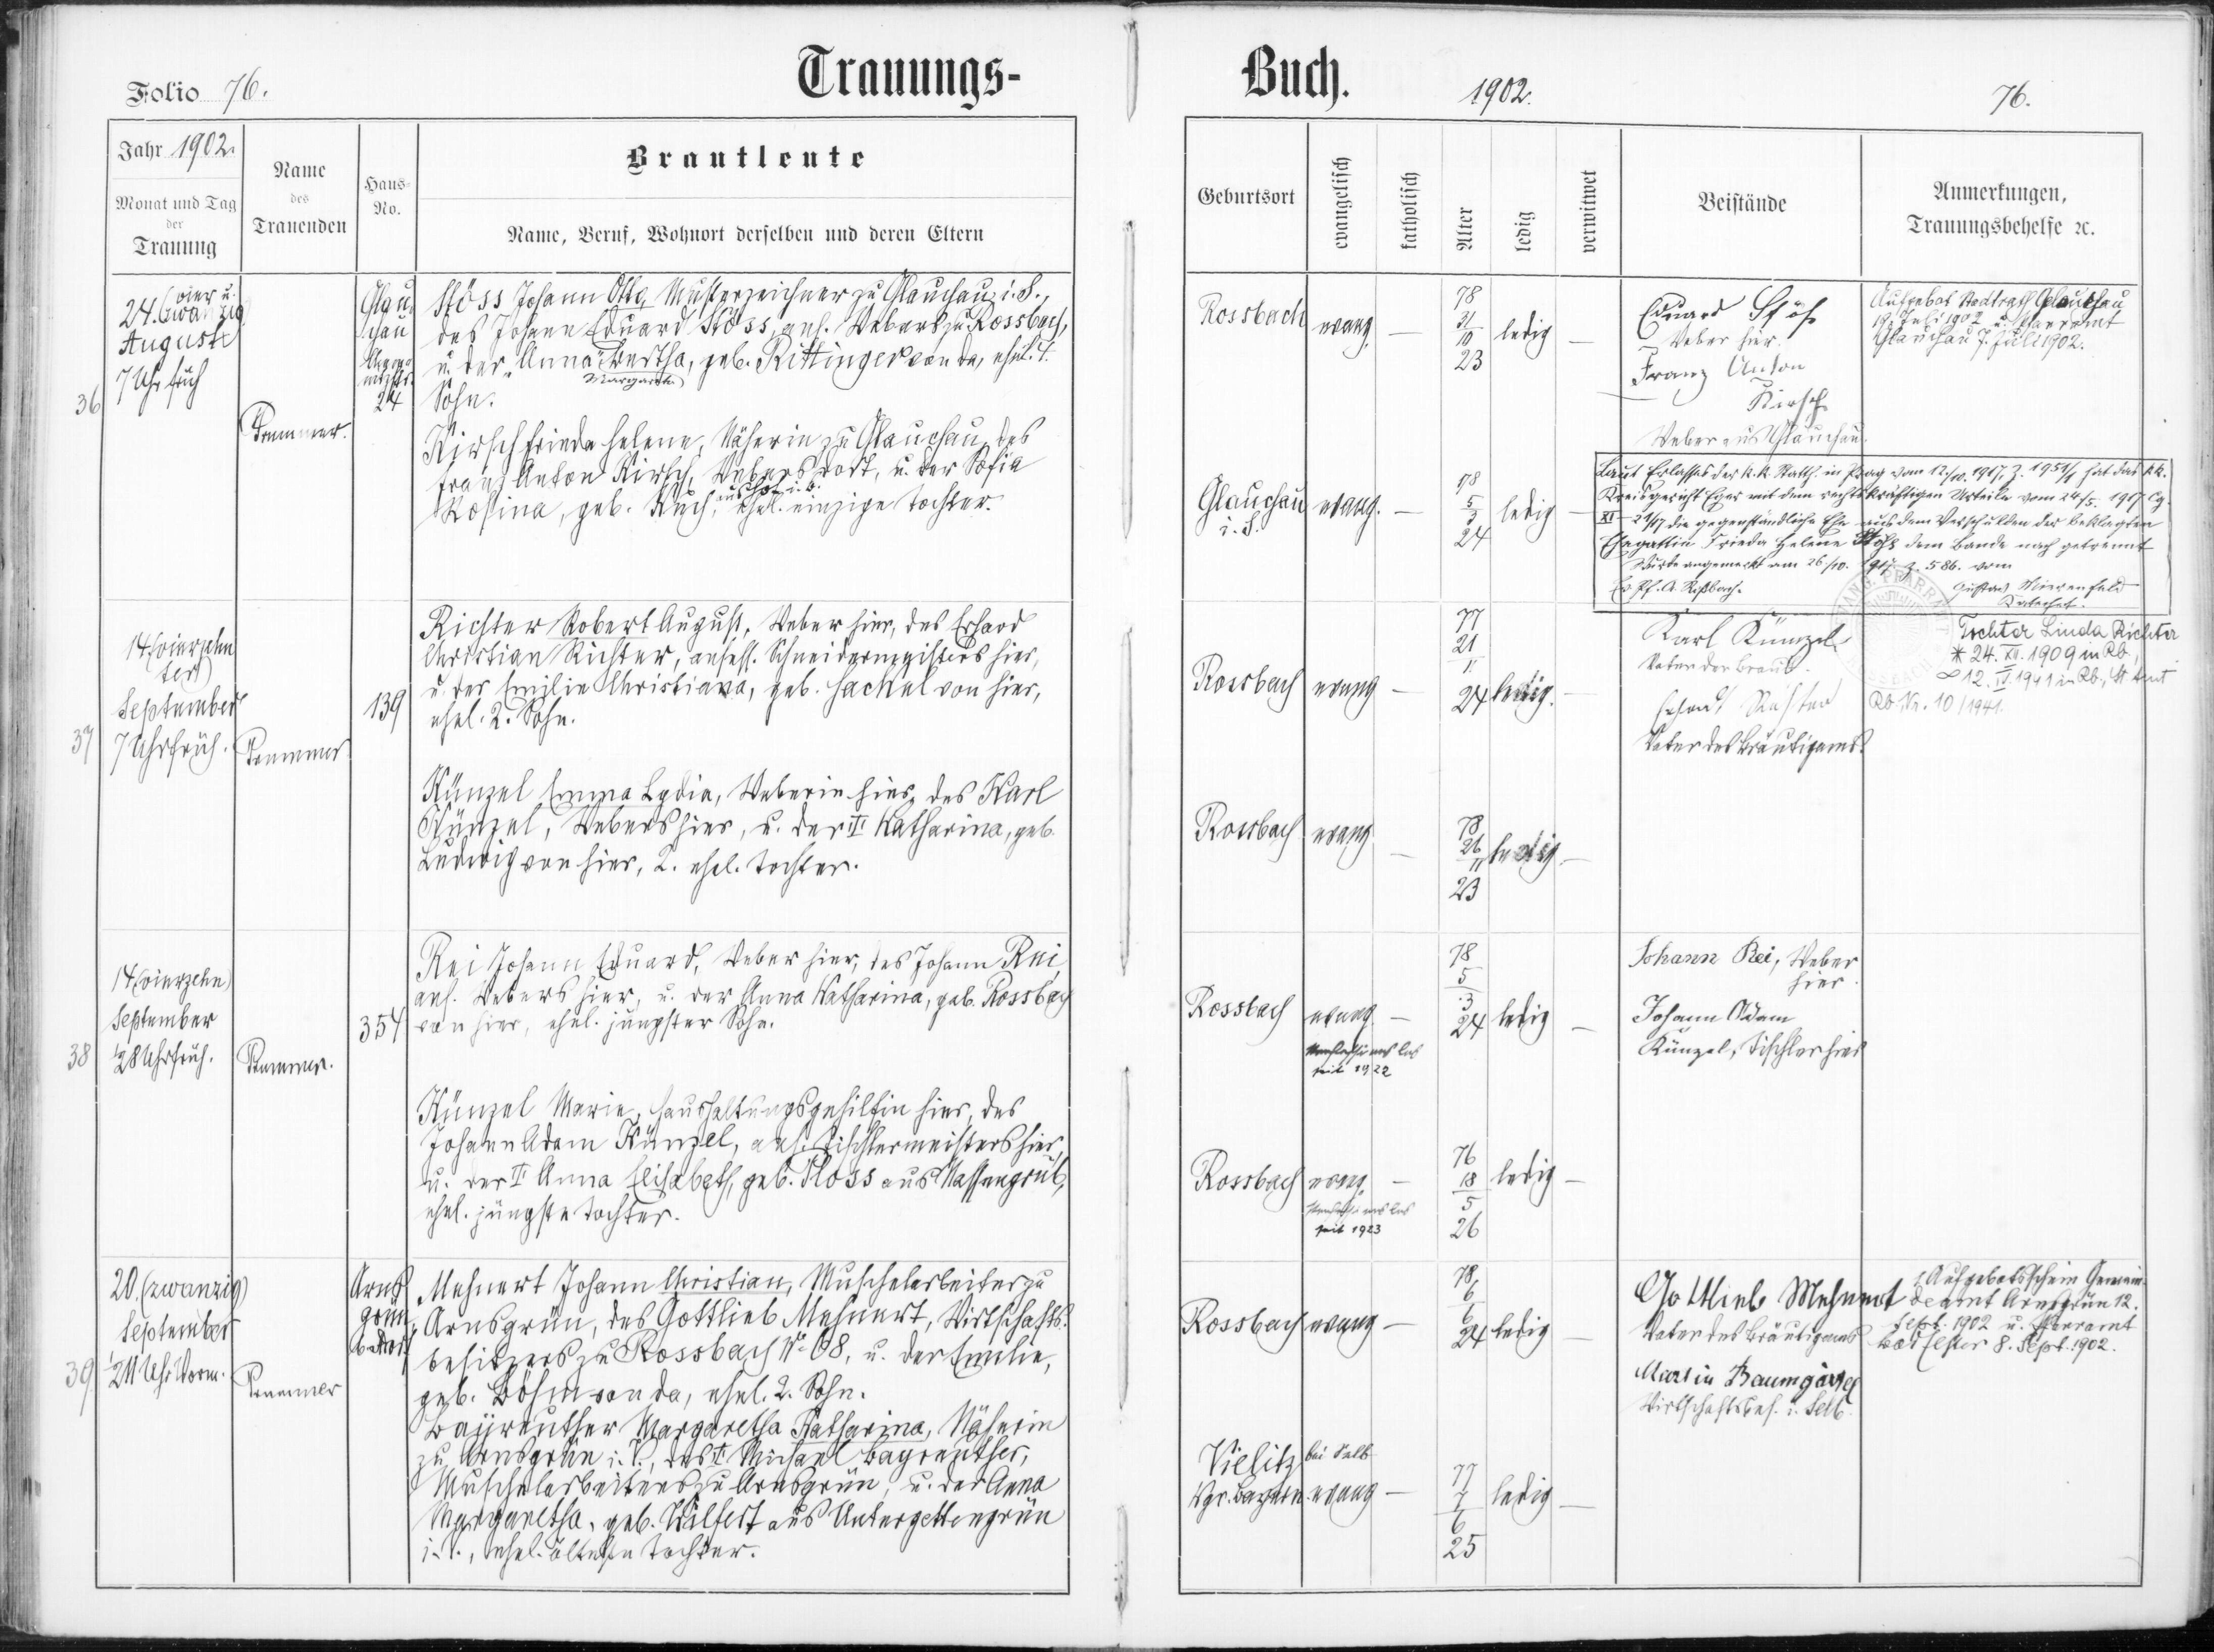 Folio 76.
Trauungs-
Jahr 1902.
Monat und Tag
der
Trauung
Name
des
Trauenden
Haus-
No.
Brautleute
Name, Beruf, Wohnort derselben und deren Eltern
36
24. (vier u.
zwanzig)
August
7 Uhr früh
Trummer.
Glau
chau
24
Stöss Johann Otto, Musterzeichner zu Glauchau i. S.,
des Johann Eduard Stöss, ans. Webers zu Rossbach,
u. der Anna Bertha, geb. Rittinger von da, ehel. 4.
Margaretha
Sohn.
Kirsch Frieda Helene, Näherin zu Glauchau, des
Franz Anton Kirsch, Webers dort, u. der Sofia
Rosina, geb. Ruch, aus Hof i. B. ehel. einzige Tochter.
37
14. (vierzehn
ter)
September
7 Uhr früh.
Trummer
139
Richter Robert August, Weber hier, des Erhard
Christian Richter, ansäss. Schneidermeisters hier,
u. der Emilie Christiana, geb. Hackel von hier,
ehel. 2. Sohn.
Künzel Emma Lydia, Weberin hier, des Karl
Künzel, Webers hier, u. der II Katharina, geb.
Ludwig von hier, 2. ehel. Tochter.
38
14 (vierzehn)
September
1/2 8 Uhr früh.
Trummer.
354
Rei Johann Eduard, Weber hier, des Johann Rei,
ans. Webers hier, u. der Anna Katharina, geb. Rossbach
von hier, ehel. jüngster Sohn.
Künzel Marie, Haushaltungsgehilfin hier, des
Johann Adam Künzel, ans. Tischlermeisters hier,
u. der II Anna Elisabeth, geb. Ploss aus Nassengrub,
ehel. jüngste Tochter.
39
20. (zwanzig)
September
1/2 11 Uhr Vorm.
Trummer
Arns
grün
Mehnert Johann Christian, Muschelarbeiter zu
Arnsgrün, des Gottlieb Mehnert, Wirtschafts-
besitzers zu Rossbach No 68, u. der Emilie,
geb. Böhm von da, ehel. 2. Sohn.
Bayreuther Margaretha Katharina, Näherin
zu Arnsgrün i. V., des II Michael Bayreuther,
Muschelarbeiters zu Arnsgrün, u. der Anna
Margaretha, geb. Wilfert aus Untergettengrün
i. V., ehel. älteste Tochter.
Buch.
1902.
76.
Geburtsort
evangelisch
katholisch
Alter
ledig
verwitwet
Beistände
Anmerkungen,
Trauungsbehelfe ꝛc.
Rossbach evang. — 78 31/10 23 ledig —
Eduard Stöß
Weber hier.
Franz Anton
Kirsch
Weber aus Glauchau.
Aufgebot Stadtrath Glauchau
19. Juli 1902 u. Pfarramt
Glauchau 7. Juli 1902.
Glauchau
i. S.
evang. — 78 5/3 24 ledig —
Laut Erlasses der k. k. Statth. in Prag vom 12./10. 1917, Z. 1951/1 hat das k.k.
Kreisgericht Eger mit dem rechtskräftigen Urteile vom 24/5. 1917 Cg.
XI 21/17 die gegenständliche Ehe aus dem Verschulden der beklagten
Ehegattin Frieda Helene Stöß dem Bande nach getrennt
Wurde angemerkt am 26/10. 1917 Z. 586. vom
Ev. Pf. A. Roßbach.
Gustav
Rossbach evang — 77 21/11 24 ledig. —
Karl Künzel
Vater der Braut.
Erhard Richter
Vater des Bräutigams.
Tochter Linda Richter
* 24. XII. 1909 in Rb,
∞ 12. IV. 1941 in Rb., St Amt
Rb. Nr. 10/1941.
Rossbach evang — 78 26/11 23 ledig. —
Rossbach evang — 78 5/3 24 ledig —
seit 1922
Johann Rei, Weber
hier.
Johann Adam
Künzel, Tischler hier
Rossbach evang. — 76 18/5 26 ledig —
seit 1923
Rossbach evang — 78 6/6 24 ledig —
Gottlieb Mehnert
Vater des Bräutigams
Martin Baumgärtel
Wirtschaftsbes. i. Selb.
Aufgebotsschein Gemein-
deamt Arnsgrün 12.
Sept. 1902 u. Pfarramt
Bad Elster 8. Sept. 1902.
Vielitz bei Selb
Kgr. Bayern. evang — 77 7/6 25 ledig —